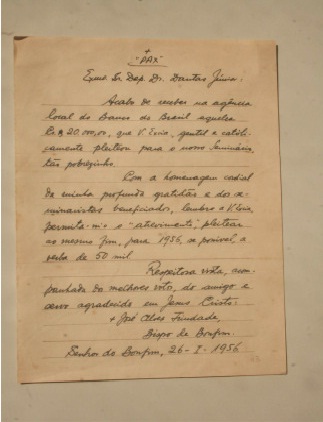 +
"PAX"
Exmº Sr. Dep. Dr. Dantas Júnior:
Acabo de receber na agência
local do Banco do Brasil aquelas
Cr$ 20.000,00, que V. Excia, gentil e catoli-
camente pleiteou para o nosso Seminário,
tão pobrezinho.
Com a homenagem cordial
da minha profunda gratidão e dos se-
minaristas beneficiados, lembro a V. Excia,
permita-me o "atrevimento", pleitear
ao mesmo fim, para 1956, se possível, a
verba de 50 mil
Respeitosa visita, acom-
panhada de melhores votos, do amigo e
servo agradecido em Jesus Cristo:
+ José Alves Trindade,
Bispo de Bonfim.
Senhor do Bonfim, 26-I-1956